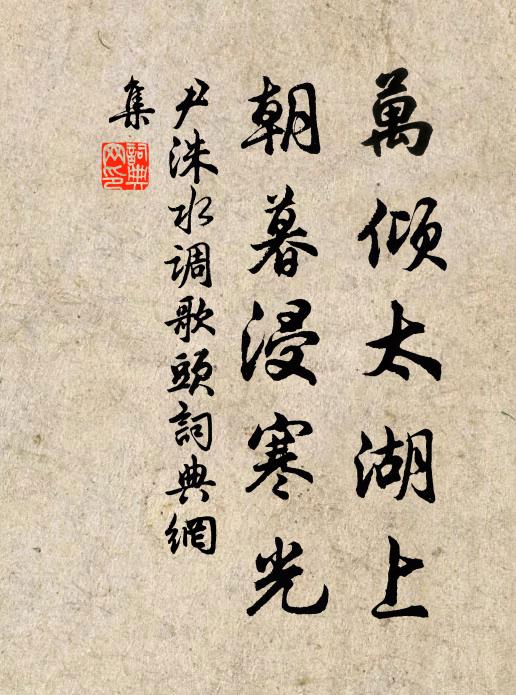 萬傾太湖上
朝暮浸寒光
尹洙水調歌頭詞典網
集
詞典網印